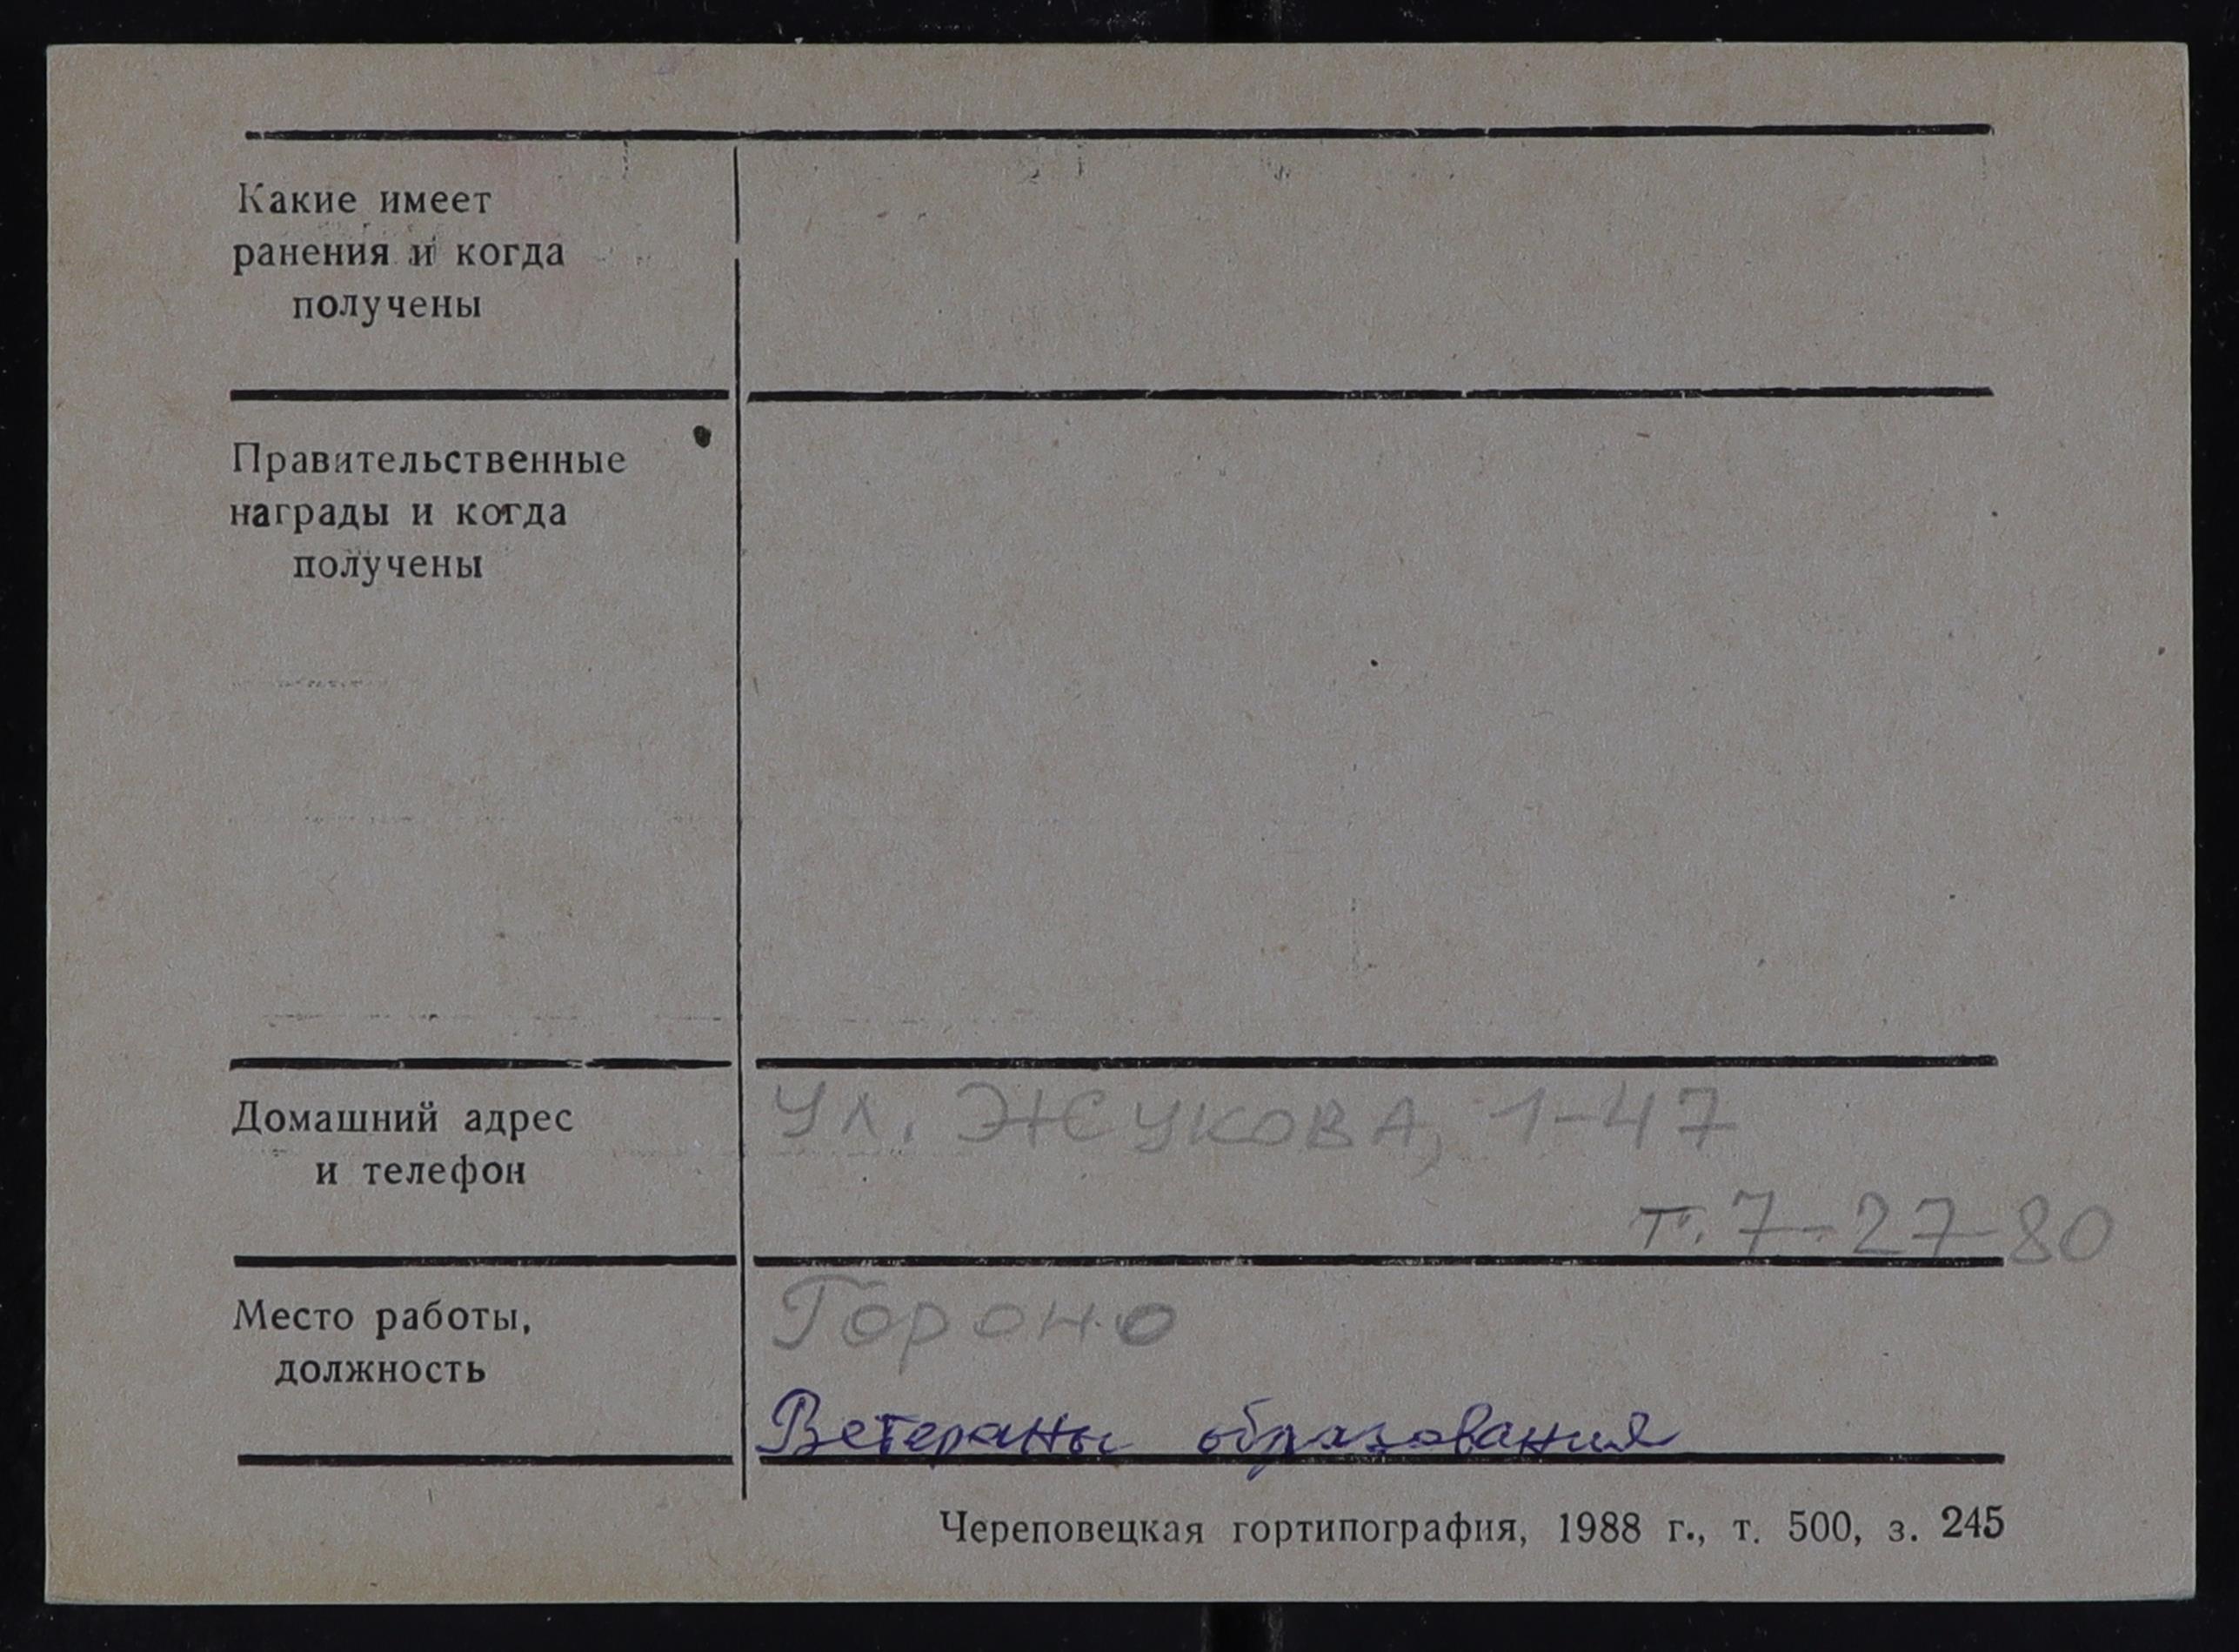 Какие имеет
ранения и когда
получены
Правительственные
награды и когда
получены
Домашний адрес
и телефон
ул. ЖУКОВА, 1-47
т. 7-27-80
Место работы,
должность
Гороно
Ветераны образования
Череповецкая гортипография, 1988 г., т. 500, з. 245